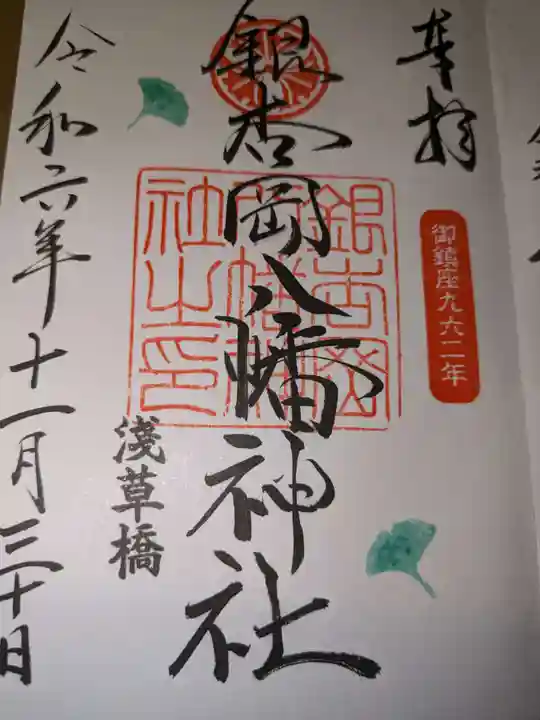 奉拝
御鎮座九六二年
銀杏岡八幡神社
銀杏岡八幡神社之印
淺草橋
令和六年十一月三十日